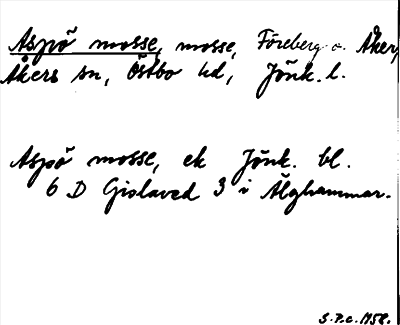 Aspö mosse, mosse, Föreberg o. Åker,
Åkers sn, Östbo hd, Jönk. l.
Aspö mosse, ek Jönk. bl.
6 D Gislaved 3 i Älghammar.
S.P.C. 1958.